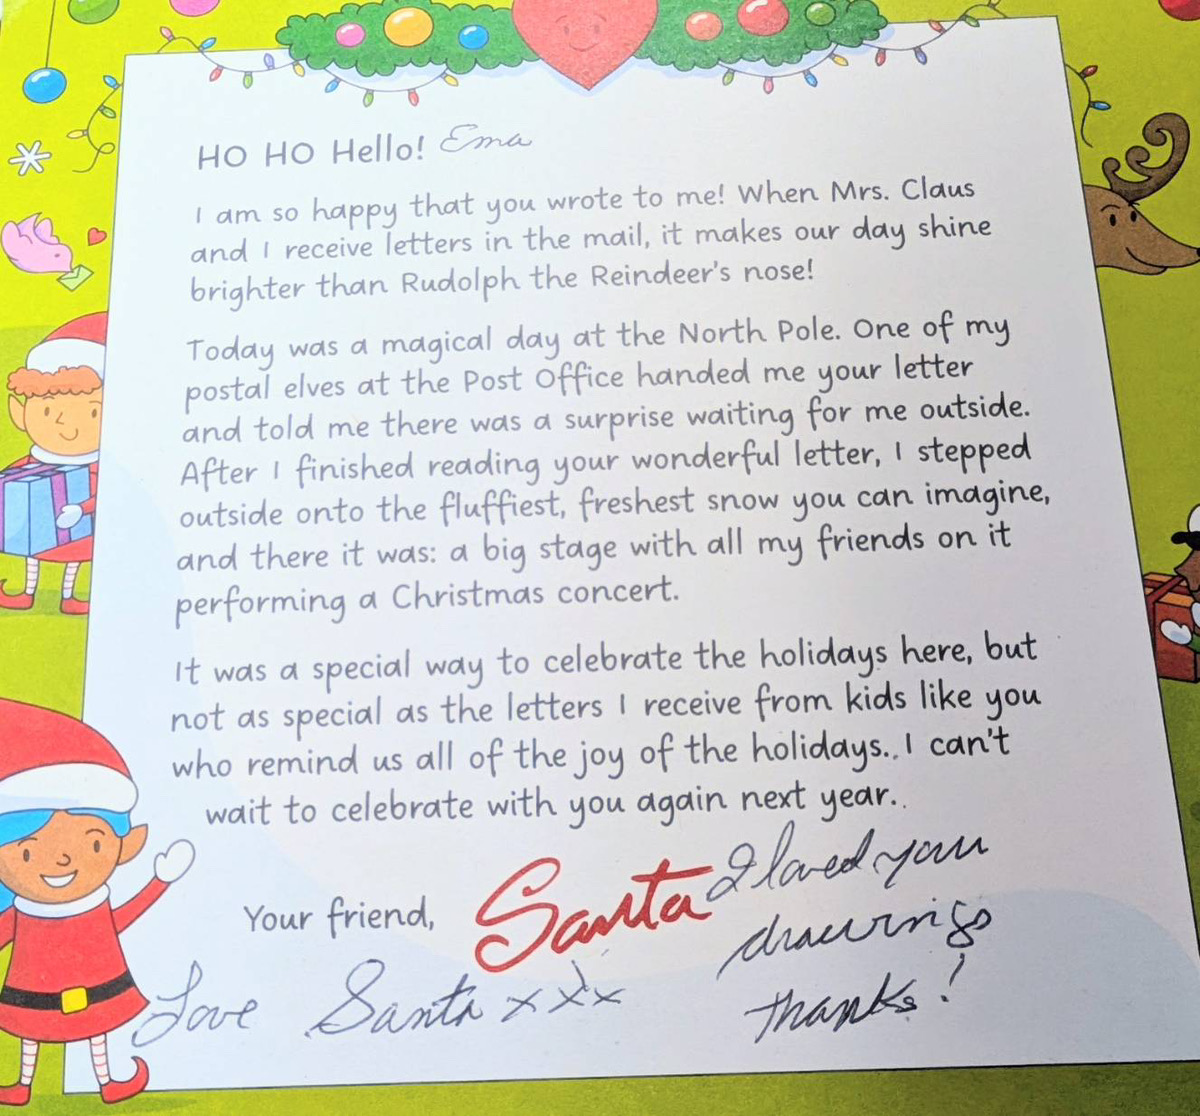 HO HO Hello! Ema
I am so happy that you wrote to me! When Mrs. Claus
and I receive letters in the mail, it makes our day shine
brighter than Rudolph the Reindeer's nose!
Today was a magical day at the North Pole. One of my
postal elves at the Post Office handed me your letter
and told me there was a surprise waiting for me outside.
After I finished reading your wonderful letter, I stepped
outside onto the fluffiest, freshest snow you can imagine,
and there it was: a big stage with all my friends on it
performing a Christmas concert.
It was a special way to celebrate the holidays here, but
not as special as the letters I receive from kids like you
who remind us all of the joy of the holidays. I can't
wait to celebrate with you again next year.
Your friend, Santa
I loved you
drawings
thanks!
Love Santa xxx